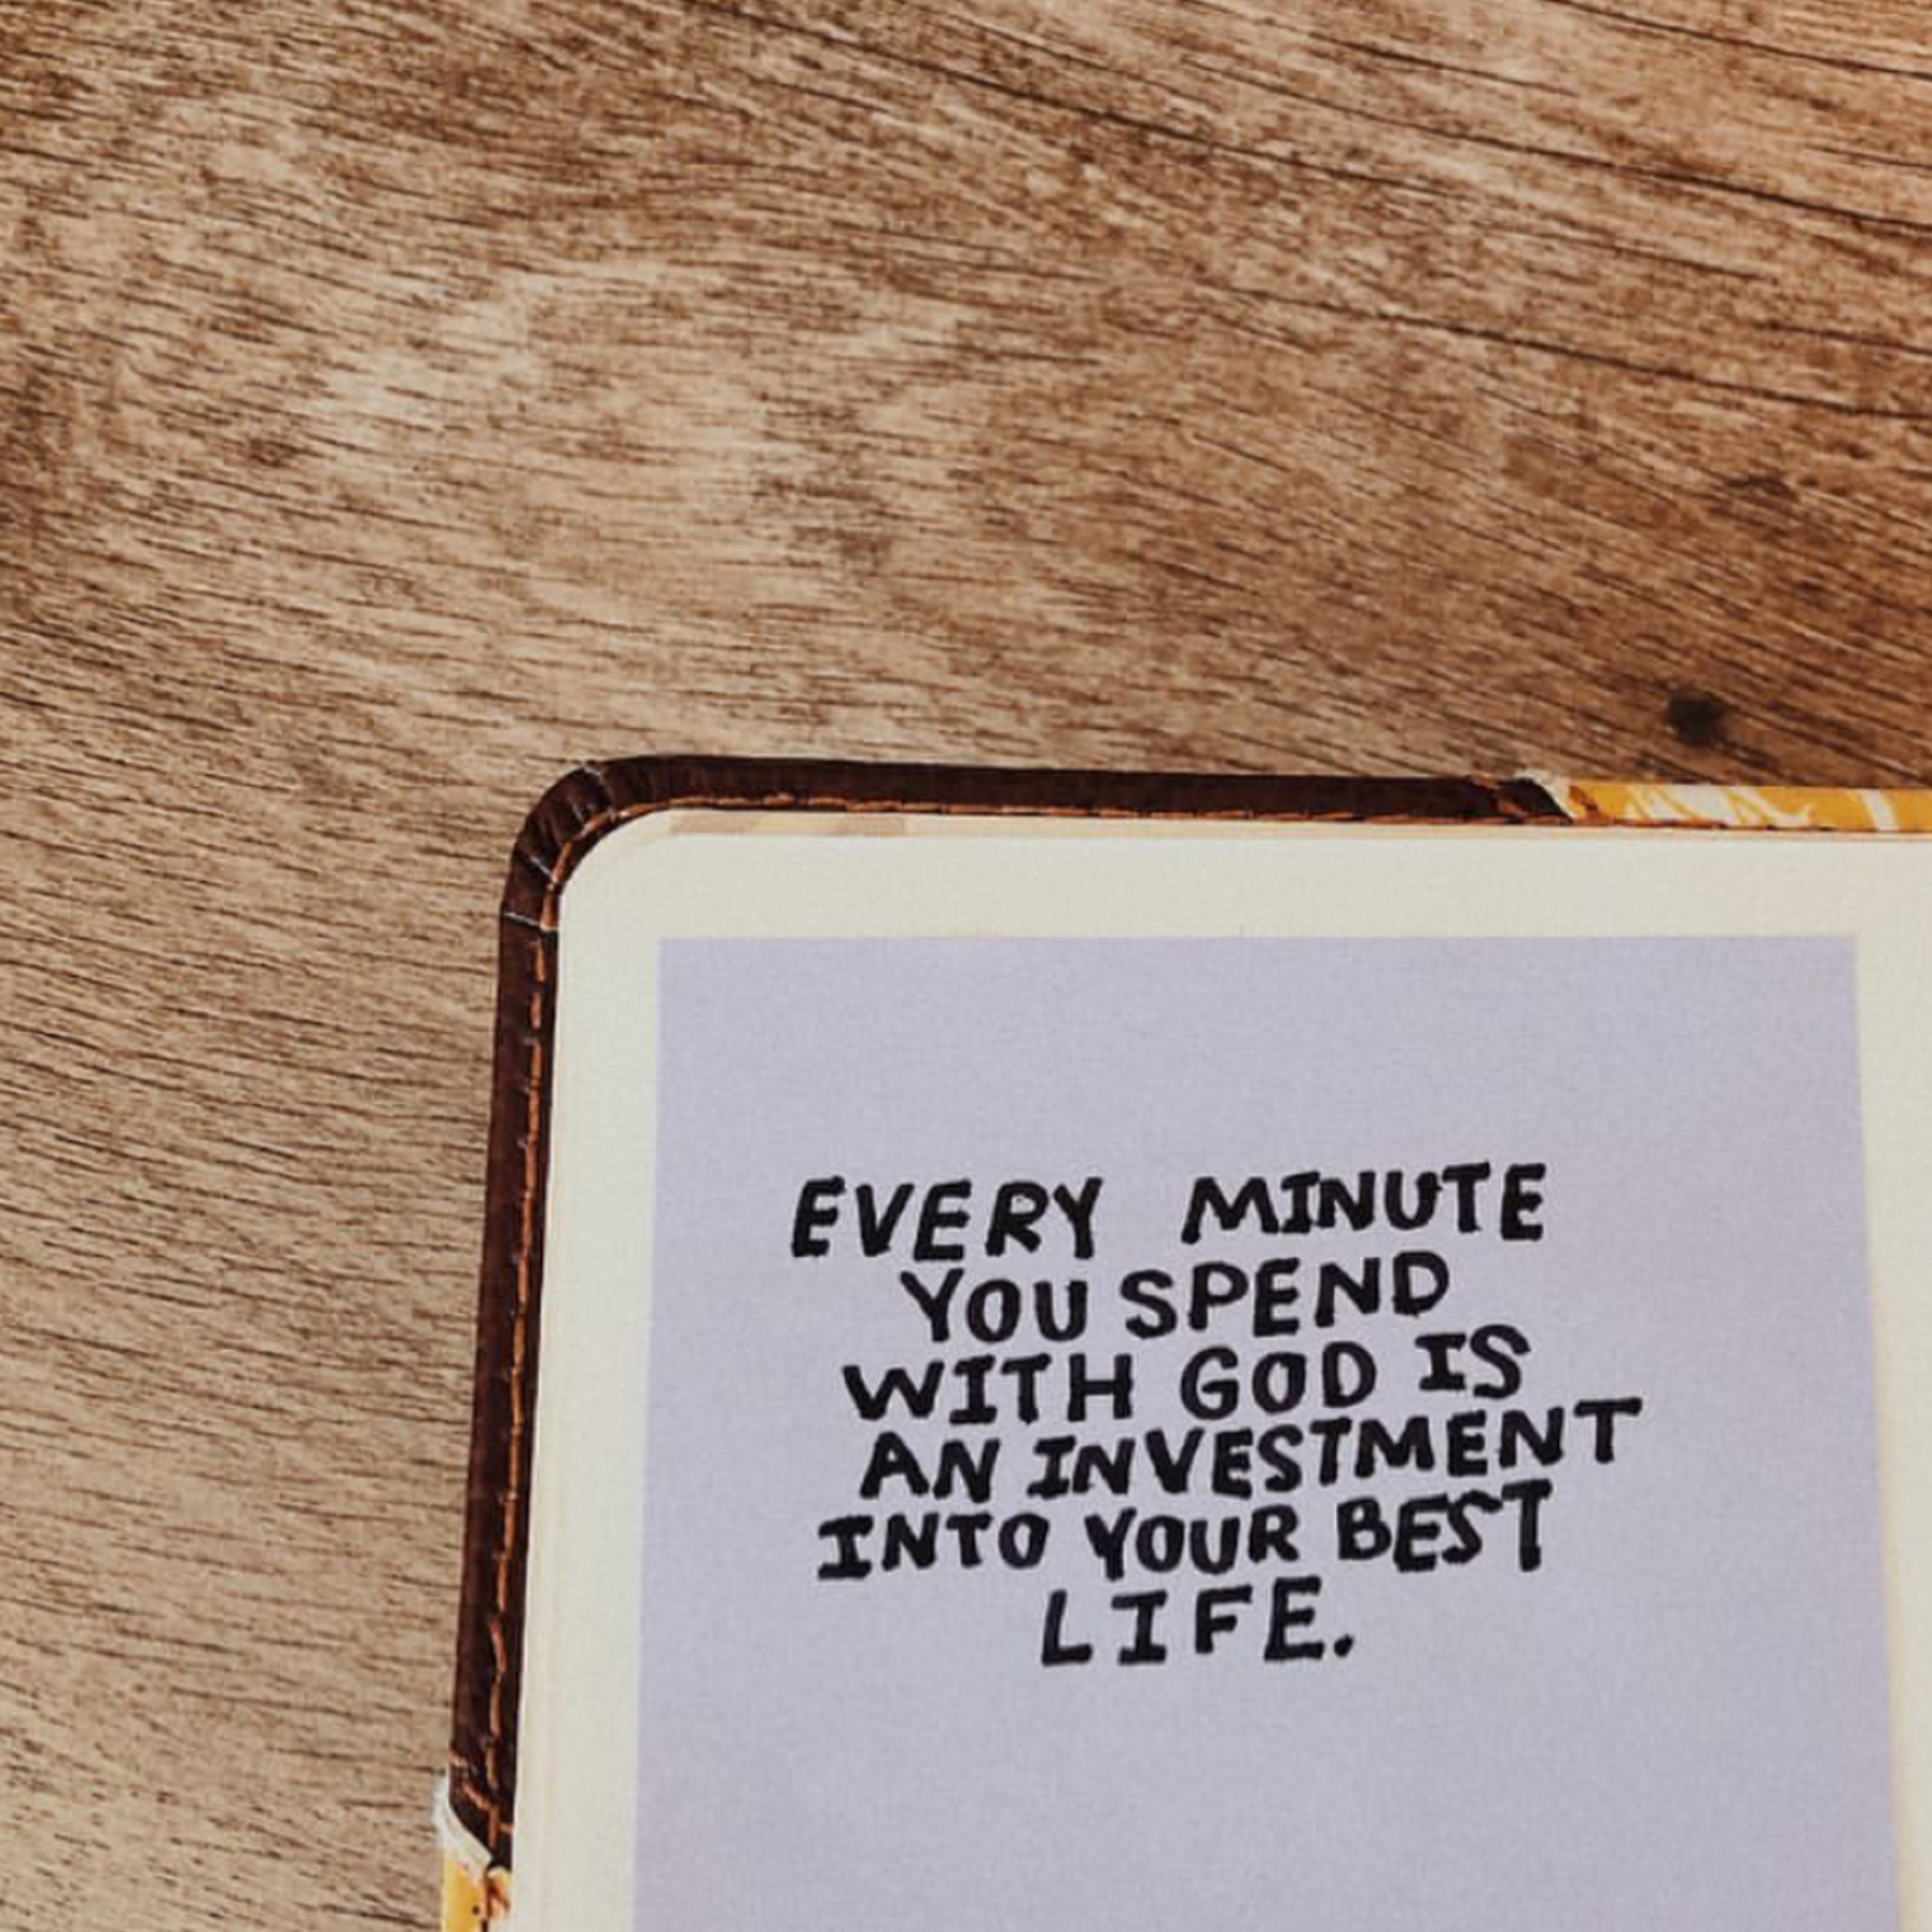 EVERY MINUTE
YOU SPEND
WITH GOD IS
AN INVESTMENT
INTO YOUR BEST
LIFE.